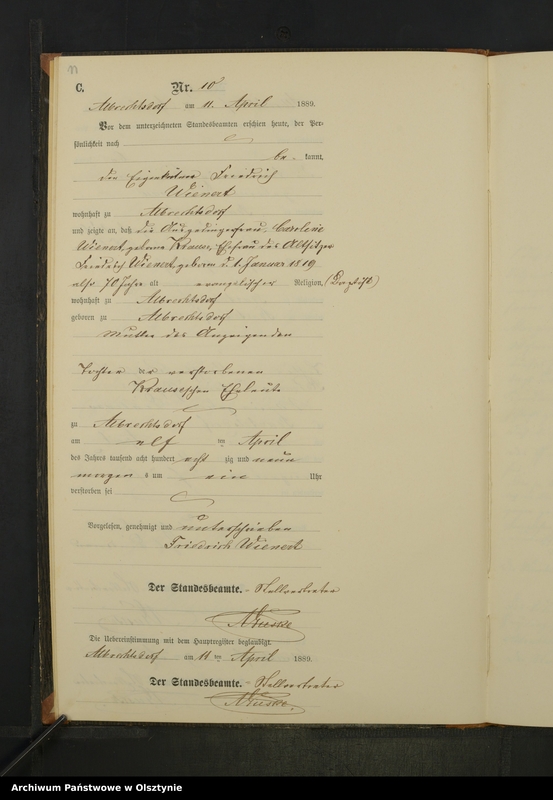 C.
Nr. 10
Albrechtsdorf am 11. April 1889.
Vor dem unterzeichneten Standesbeamten erschien heute, der Per-
sönlichkeit nach
be- kannt,
der Eigenkätner Friedrich
Wienert
wohnhaft zu Albrechtsdorf
und zeigte an, daß die Ausgedingerfrau, Caroline
Wienert, geborne Krause, Ehefrau des Altsitzer
Friedrich Wienert, geboren d. 1. Januar 1819
also 70 Jahre alt evangelischer Religion,
wohnhaft zu Albrechtsdorf
geboren zu Albrechtsdorf
Mutter des Anzeigenden
Tochter der verstorbenen
Krauseschen Eheleute
zu Albrechtsdorf
am elf ten April
des Jahres tausend acht hundert acht zig und neun
morgens um ein Uhr
verstorben sei
Vorgelesen, genehmigt und unterschrieben
Friedrich Wienert
Der Standesbeamte. - Stellvertreter
Die Uebereinstimmung mit dem Hauptregister beglaubigt.
Albrechtsdorf am 11 ten April 1889.
Der Standesbeamte. - Stellvertreter
Archiwum Państwowe w Olsztynie